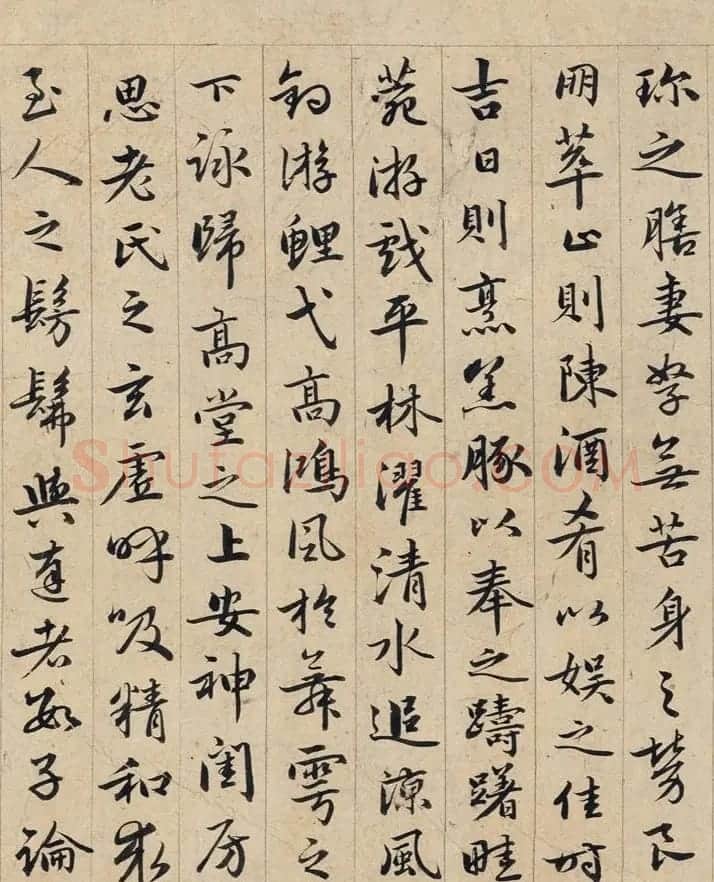 珎之膳妻孥無苦身之勞良
朋萃止則陳酒肴以娛之佳時
吉日則烹羔豚以奉之躊躇畦
菀游戲平林濯清水追涼風
釣游鯉弋高鴻風於舞雩之
下詠歸高堂之上安神閨房
思老氏之玄虛呼吸精和求
至人之髣髴與達者數子論
Shufaziliao.COM